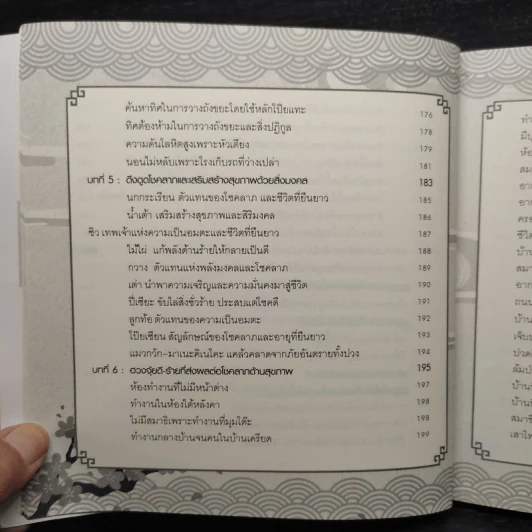 ค้นหาทิศในการวางถังขยะโดยใช้หลักโป๊ยแทะ 176
ทิศต้องห้ามในการวางถังขยะและสิ่งปฏิกูล 178
ความดันโลหิตสูงเพราะหัวเตียง 179
นอนไม่หลับเพราะโรงเก็บรถที่ว่างเปล่า 181
บทที่ 5 : ดึงดูดโชคลาภและเสริมสร้างสุขภาพด้วยสิ่งมงคล 183
นกกระเรียน ตัวแทนของโชคลาภ และชีวิตที่ยืนยาว 185
น้ำเต้า เสริมสร้างสุขภาพและสิริมงคล 186
ซิ่ว เทพเจ้าแห่งความเป็นอมตะและชีวิตที่ยืนยาว 187
ไม้ไผ่ แก้พลังด้านร้ายให้กลายเป็นดี 188
กวาง ตัวแทนแห่งพลังมงคลและโชคลาภ 189
เต่า นำพาความเจริญและความมั่นคงมาสู่ชีวิต 190
ปี่เซียะ ขับไล่สิ่งชั่วร้าย ประสบแต่โชคดี 191
ลูกท้อ ตัวแทนของความเป็นอมตะ 192
โป๊ยเซียน สัญลักษณ์ของโชคลาภและอายุที่ยืนยาว 193
แมวกวัก-มาเนะคิเนโคะ แคล้วคลาดจากภัยอันตรายทั้งปวง 194
บทที่ 6 : ฮวงจุ้ยดี-ร้ายที่ส่งผลต่อโชคลาภด้านสุขภาพ 195
ห้องทำงานที่ไม่มีหน้าต่าง 197
ทำงานในห้องใต้หลังคา 198
ไม่มีสมาธิเพราะทำงานที่มุมโต๊ะ 198
ทำงานกลางบ้านจนคนในบ้านเครียด 199